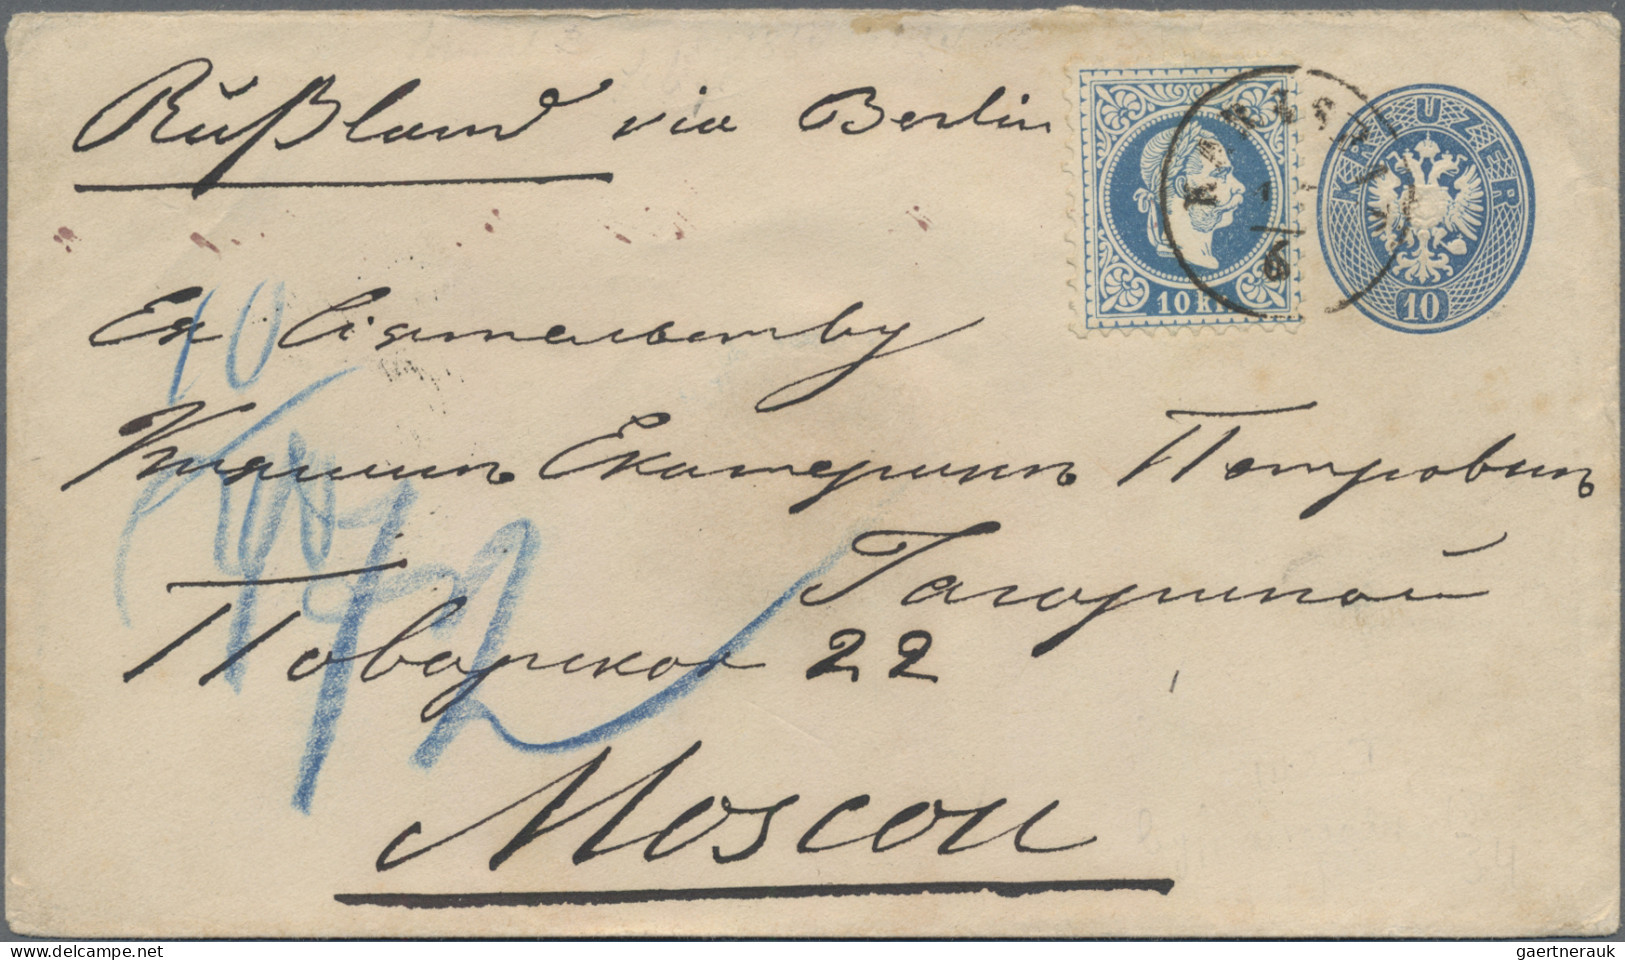 Rußland via Berlin
KREUZER
10
10 KR.
6
Ея Сіятельству
10
Княгинѣ Екатеринѣ Петровнѣ
Гагариной
Поварская 22
Moscou
34
delcampe.net
gaertnerauk